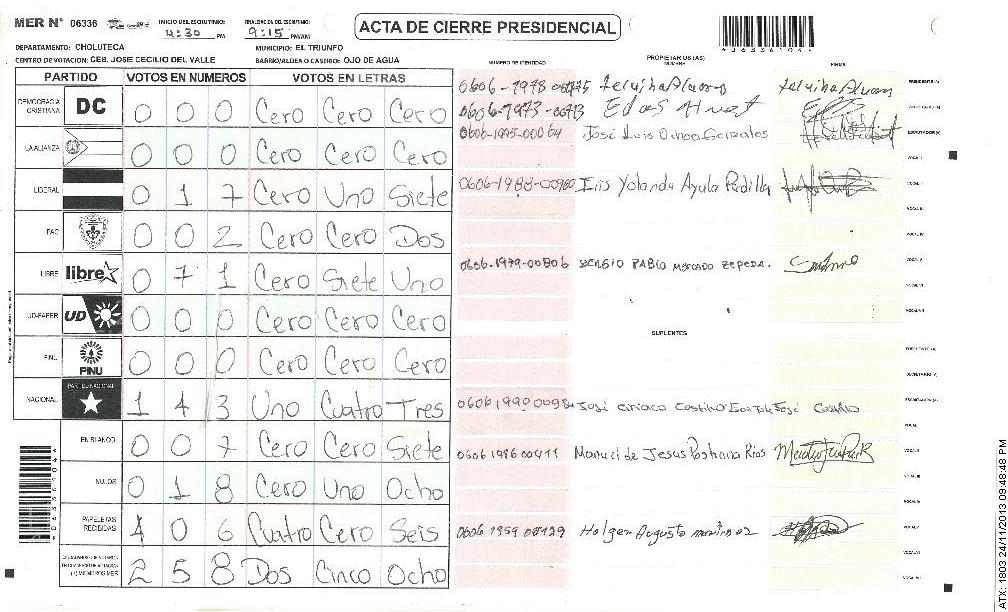 MER N° 06336 INICIO DEL ESCRUTINIO: 4:30 PM FINALIZACION DEL ESCRUTINIO: 9:15 PM/AM
ACTA DE CIERRE PRESIDENCIAL
DEPARTAMENTO: CHOLUTECA MUNICIPIO: EL TRIUNFO
CENTRO DE VOTACION: CEB. JOSE CECILIO DEL VALLE BARRIO/ALDEA O CASERIO: OJO DE AGUA
NUMERO DE IDENTIDAD PROPIETARIOS (AS) NOMBRE FIRMA
PARTIDO VOTOS EN NUMEROS VOTOS EN LETRAS
DEMOCRACIA CRISTIANA DC 0 0 0 Cero Cero Cero
LA ALIANZA 0 0 0 Cero Cero Cero
LIBERAL 0 1 7 Cero Uno Siete
PAC 0 0 2 Cero Cero Dos
LIBRE libre 0 7 1 Cero Siete Uno
UD-FAPER UD 0 0 0 Cero Cero Cero
PINU PINU 0 0 0 Cero Cero Cero
NACIONAL PARTIDO NACIONAL 1 4 3 Uno Cuatro Tres
EN BLANCO 0 0 7 Cero Cero Siete
NULOS 0 1 8 Cero Uno Ocho
PAPELETAS RECIBIDAS 4 0 6 Cuatro Cero Seis
CIUDADANOS QUE VOTARON 2 5 8 Dos Cinco Ocho
PRESIDENTE (A)
SECRETARIO (A)
0606-1995-00064 José Luis Ochoa Gonzales ESCRUTADOR (A)
VOCAL I
0606-1988-00980 Iris Yolanda Ayala Padilla
0606-1979-00806 SERGIO PABLO MERCADO ZEPEDA.
SUPLENTES
PRESIDENTE (A)
SECRETARIO (A)
José Ciriaco Castillo José Castillo
0606 1986 00411 Manuel de Jesus Pastrana Rios
0606 1959 00129 Holger Augusto
06336104
ATX: 1803 24/11/2013 09:48:48 PM